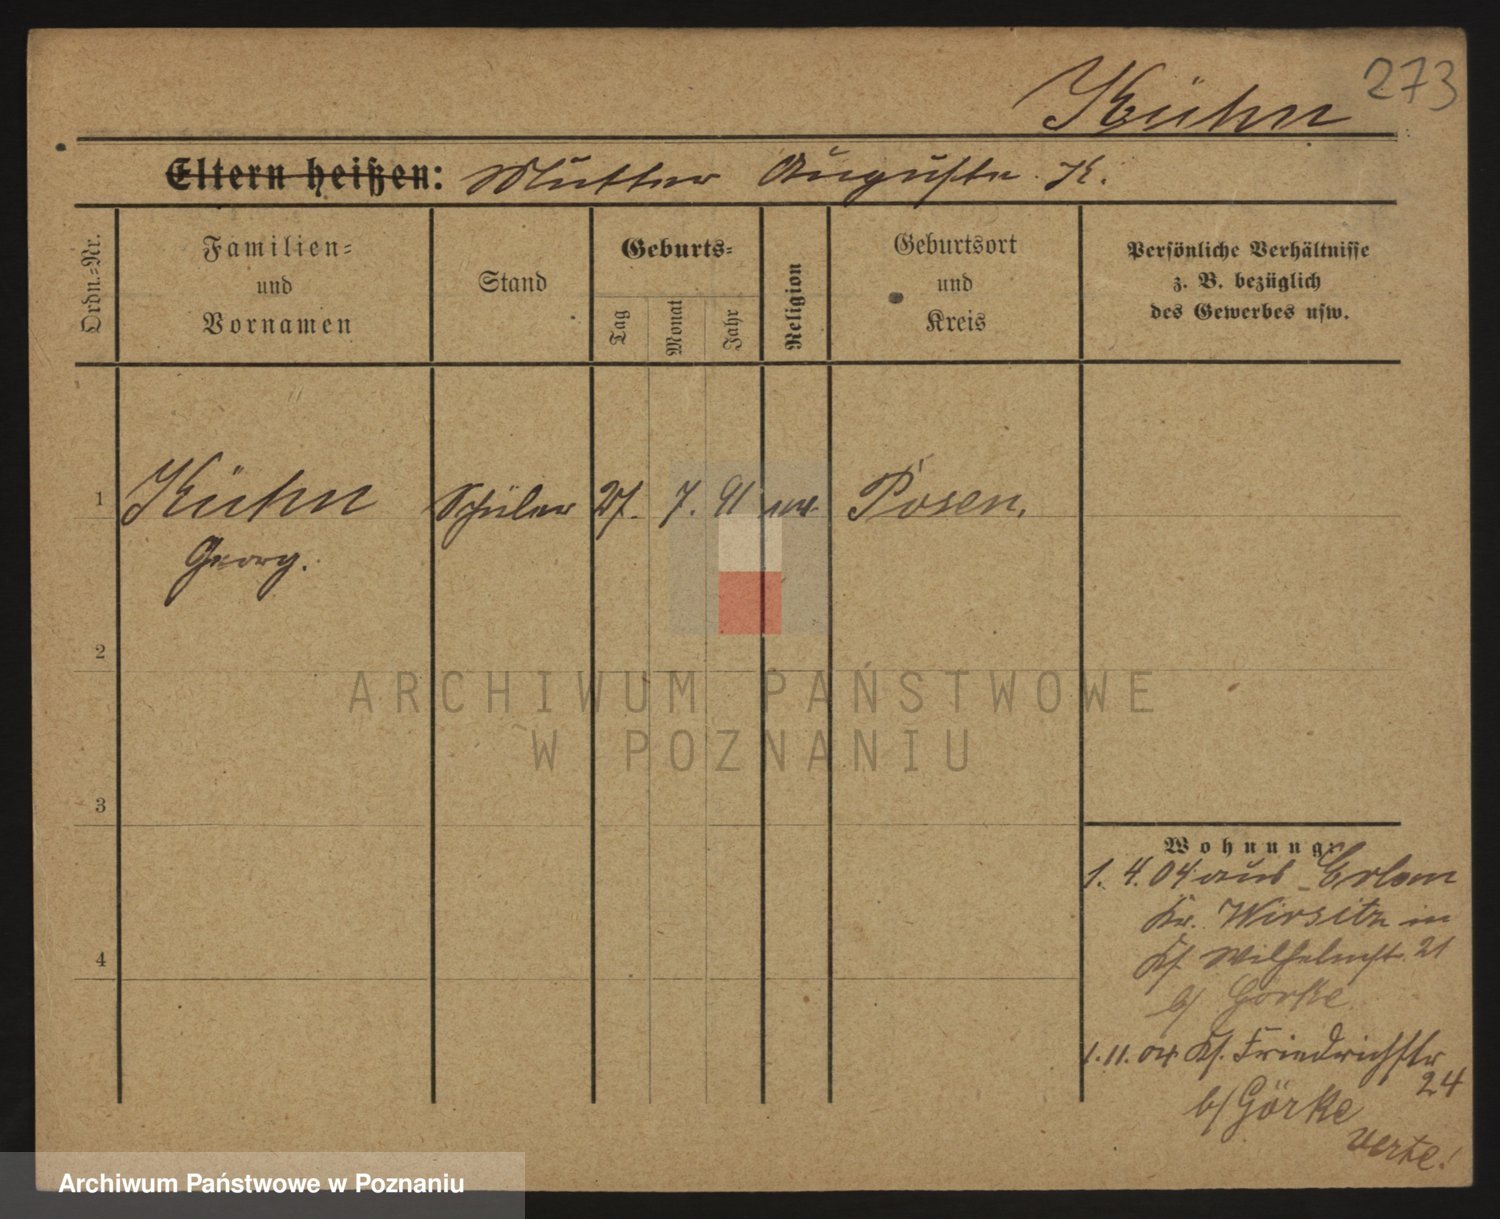 273
Kühn
Eltern heißen: Mutter Auguste K.
Ordn.=Nr.
Familien=
und
Vornamen
Stand
Geburts=
Tag
Monat
Jahr
Religion
Geburtsort
und
Kreis
Persönliche Verhältnisse
z. B. bezüglich
des Gewerbes usw.
1 Kühn Schüler 27. 7. 91 Posen.
Georg.
2
3
4
Wohnung:
1. 4. 04 aus Erlau
Kr. Wirsitz in
Wilhelmst. 21
b/ Görke
1. 11. 04 Friedrichstr
24
b/ Görke
verte!
ARCHIWUM PAŃSTWOWE
W POZNANIU
Archiwum Państwowe w Poznaniu